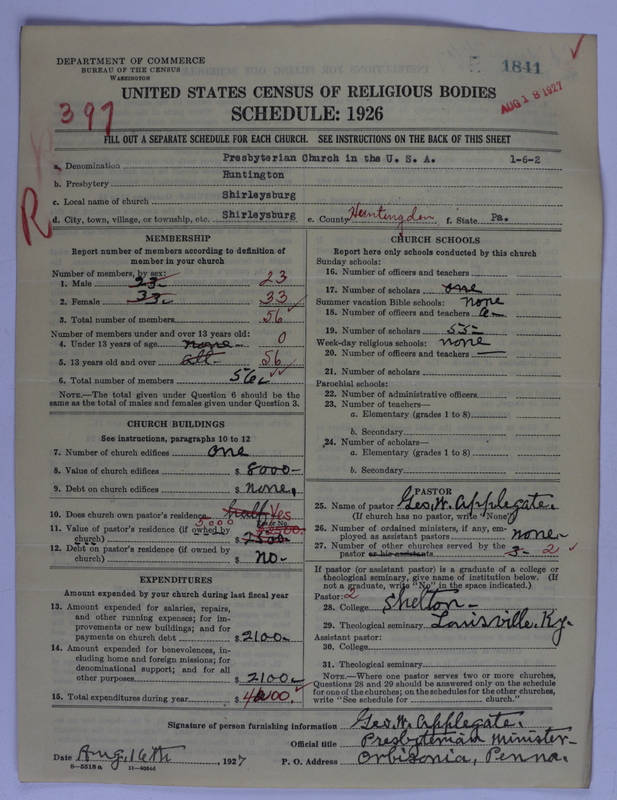 DEPARTMENT OF COMMERCE
BUREAU OF THE CENSUS
WASHINGTON
1841
AUG 18 1927
UNITED STATES CENSUS OF RELIGIOUS BODIES
SCHEDULE: 1926
397
FILL OUT A SEPARATE SCHEDULE FOR EACH CHURCH. SEE INSTRUCTIONS ON THE BACK OF THIS SHEET
R
a. Denomination Presbyterian Church in the U. S. A. 1-6-2
b. Presbytery Huntington
c. Local name of church Shirleysburg
d. City, town, village, or township, etc. Shirleysburg e. County Huntingdon f. State Pa.
MEMBERSHIP
Report number of members according to definition of
member in your church
Number of members, by sex:
1. Male 23- 23
2. Female 33- 33
3. Total number of members 56
Number of members under and over 13 years old:
4. Under 13 years of age none- 0
5. 13 years old and over all- 56
6. Total number of members 56
NOTE.—The total given under Question 6 should be the
same as the total of males and females given under Question 3.
CHURCH BUILDINGS
See instructions, paragraphs 10 to 12
7. Number of church edifices one
8. Value of church edifices $ 8000-
9. Debt on church edifices $ none.
10. Does church own pastor's residence half Yes
11. Value of pastor's residence (if owned by
5000
church) $ 2500.
12. Debt on pastor's residence (if owned by
church) $ no-
EXPENDITURES
Amount expended by your church during last fiscal year
13. Amount expended for salaries, repairs,
and other running expenses; for im-
provements or new buildings; and for
payments on church debt $ 2100-
14. Amount expended for benevolences, in-
cluding home and foreign missions; for
denominational support; and for all
other purposes $ 2100-
15. Total expenditures during year $ 4200.
CHURCH SCHOOLS
Report here only schools conducted by this church
Sunday schools:
16. Number of officers and teachers
17. Number of scholars one
Summer vacation Bible schools: none
18. Number of officers and teachers 6-
19. Number of scholars 55-
Week-day religious schools: none
20. Number of officers and teachers —
21. Number of scholars
Parochial schools:
22. Number of administrative officers
23. Number of teachers—
a. Elementary (grades 1 to 8)
b. Secondary
24. Number of scholars—
a. Elementary (grades 1 to 8)
b. Secondary $
PASTOR
25. Name of pastor Geo. W. Applegate.
(If church has no pastor, write "None")
26. Number of ordained ministers, if any, em-
ployed as assistant pastors none-
27. Number of other churches served by the
pastor or his assistants 3- 2
If pastor (or assistant pastor) is a graduate of a college or
theological seminary, give name of institution below. (If
not a graduate, write "No" in the space indicated.)
Pastor: 2
28. College Shelton-
29. Theological seminary Louisville, Ky-
Assistant pastor:
30. College
31. Theological seminary
NOTE.—Where one pastor serves two or more churches,
Questions 28 and 29 should be answered only on the schedule
for one of the churches; on the schedules for the other churches,
write "See schedule for ........ church."
Signature of person furnishing information Geo. W. Applegate.
Official title Presbyterian Minister-
Date Aug. 16th, 1927 P. O. Address Orbisonia, Penna.
8—5518 a 11—9054d